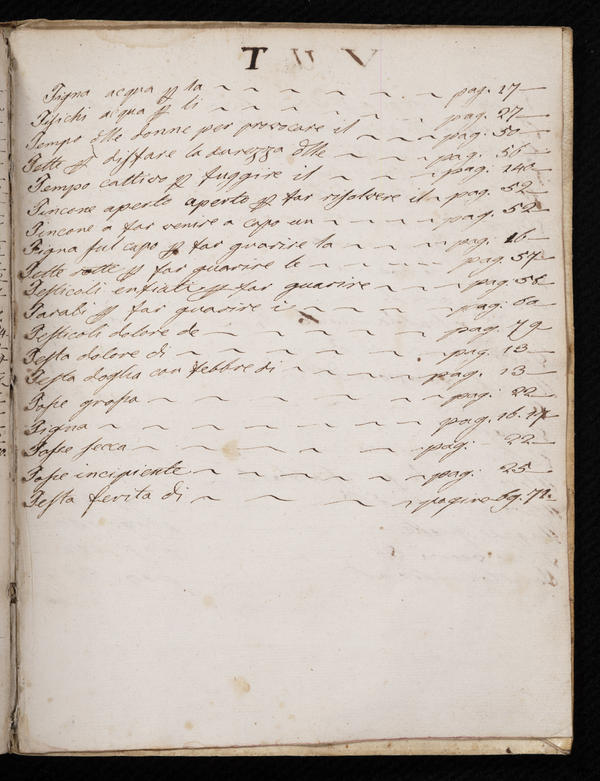 T
Tigna acqua p la pag. 17
Tisichi acqua p li pag. 27
Tempo dlle donne per provocare il pag. 50
Tette p disfare la durezza dlle pag. 56
Tempo cattivo p fuggire il pag. 142
Tincone aperto aperto p far risolvere il pag. 52
Tincone a far venire a capo un pag. 52
Tigna sul capo p far guarire la pag. 16
Tette rotte p far guarire le pag. 57
Testicoli enfiati p far guarire pag. 58
Tarali p far guarire i pag. 60
Testicoli dolore de pag. 79
Testa dolore di pag. 13
Testa doglia con febbre di pag. 13
Tosse grossa pag. 22
Tigna pag. 16. 17
Tosse secca pag. 22
Tosse incipiente pag. 25
Testa ferita di pagina 69. 71